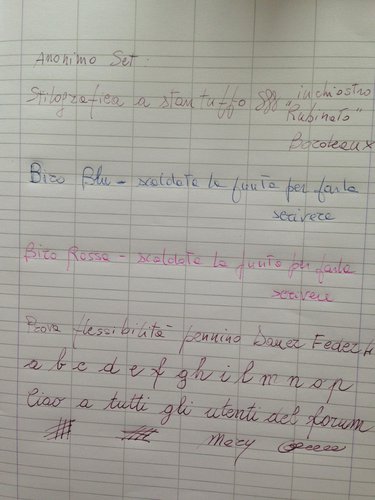 Anonimo Set.
Stilografica a stantuffo
"inchiostro
Rubinato"
Bordeaux
Biro Blu - scaldata la punta per farla
scrivere
Biro Rossa - scaldata la punta per farla
scrivere
Prova flessibilità pennino Bauer Feder
a b c d e f g h i l m n o p
Ciao a tutti gli utenti del forum
Mary